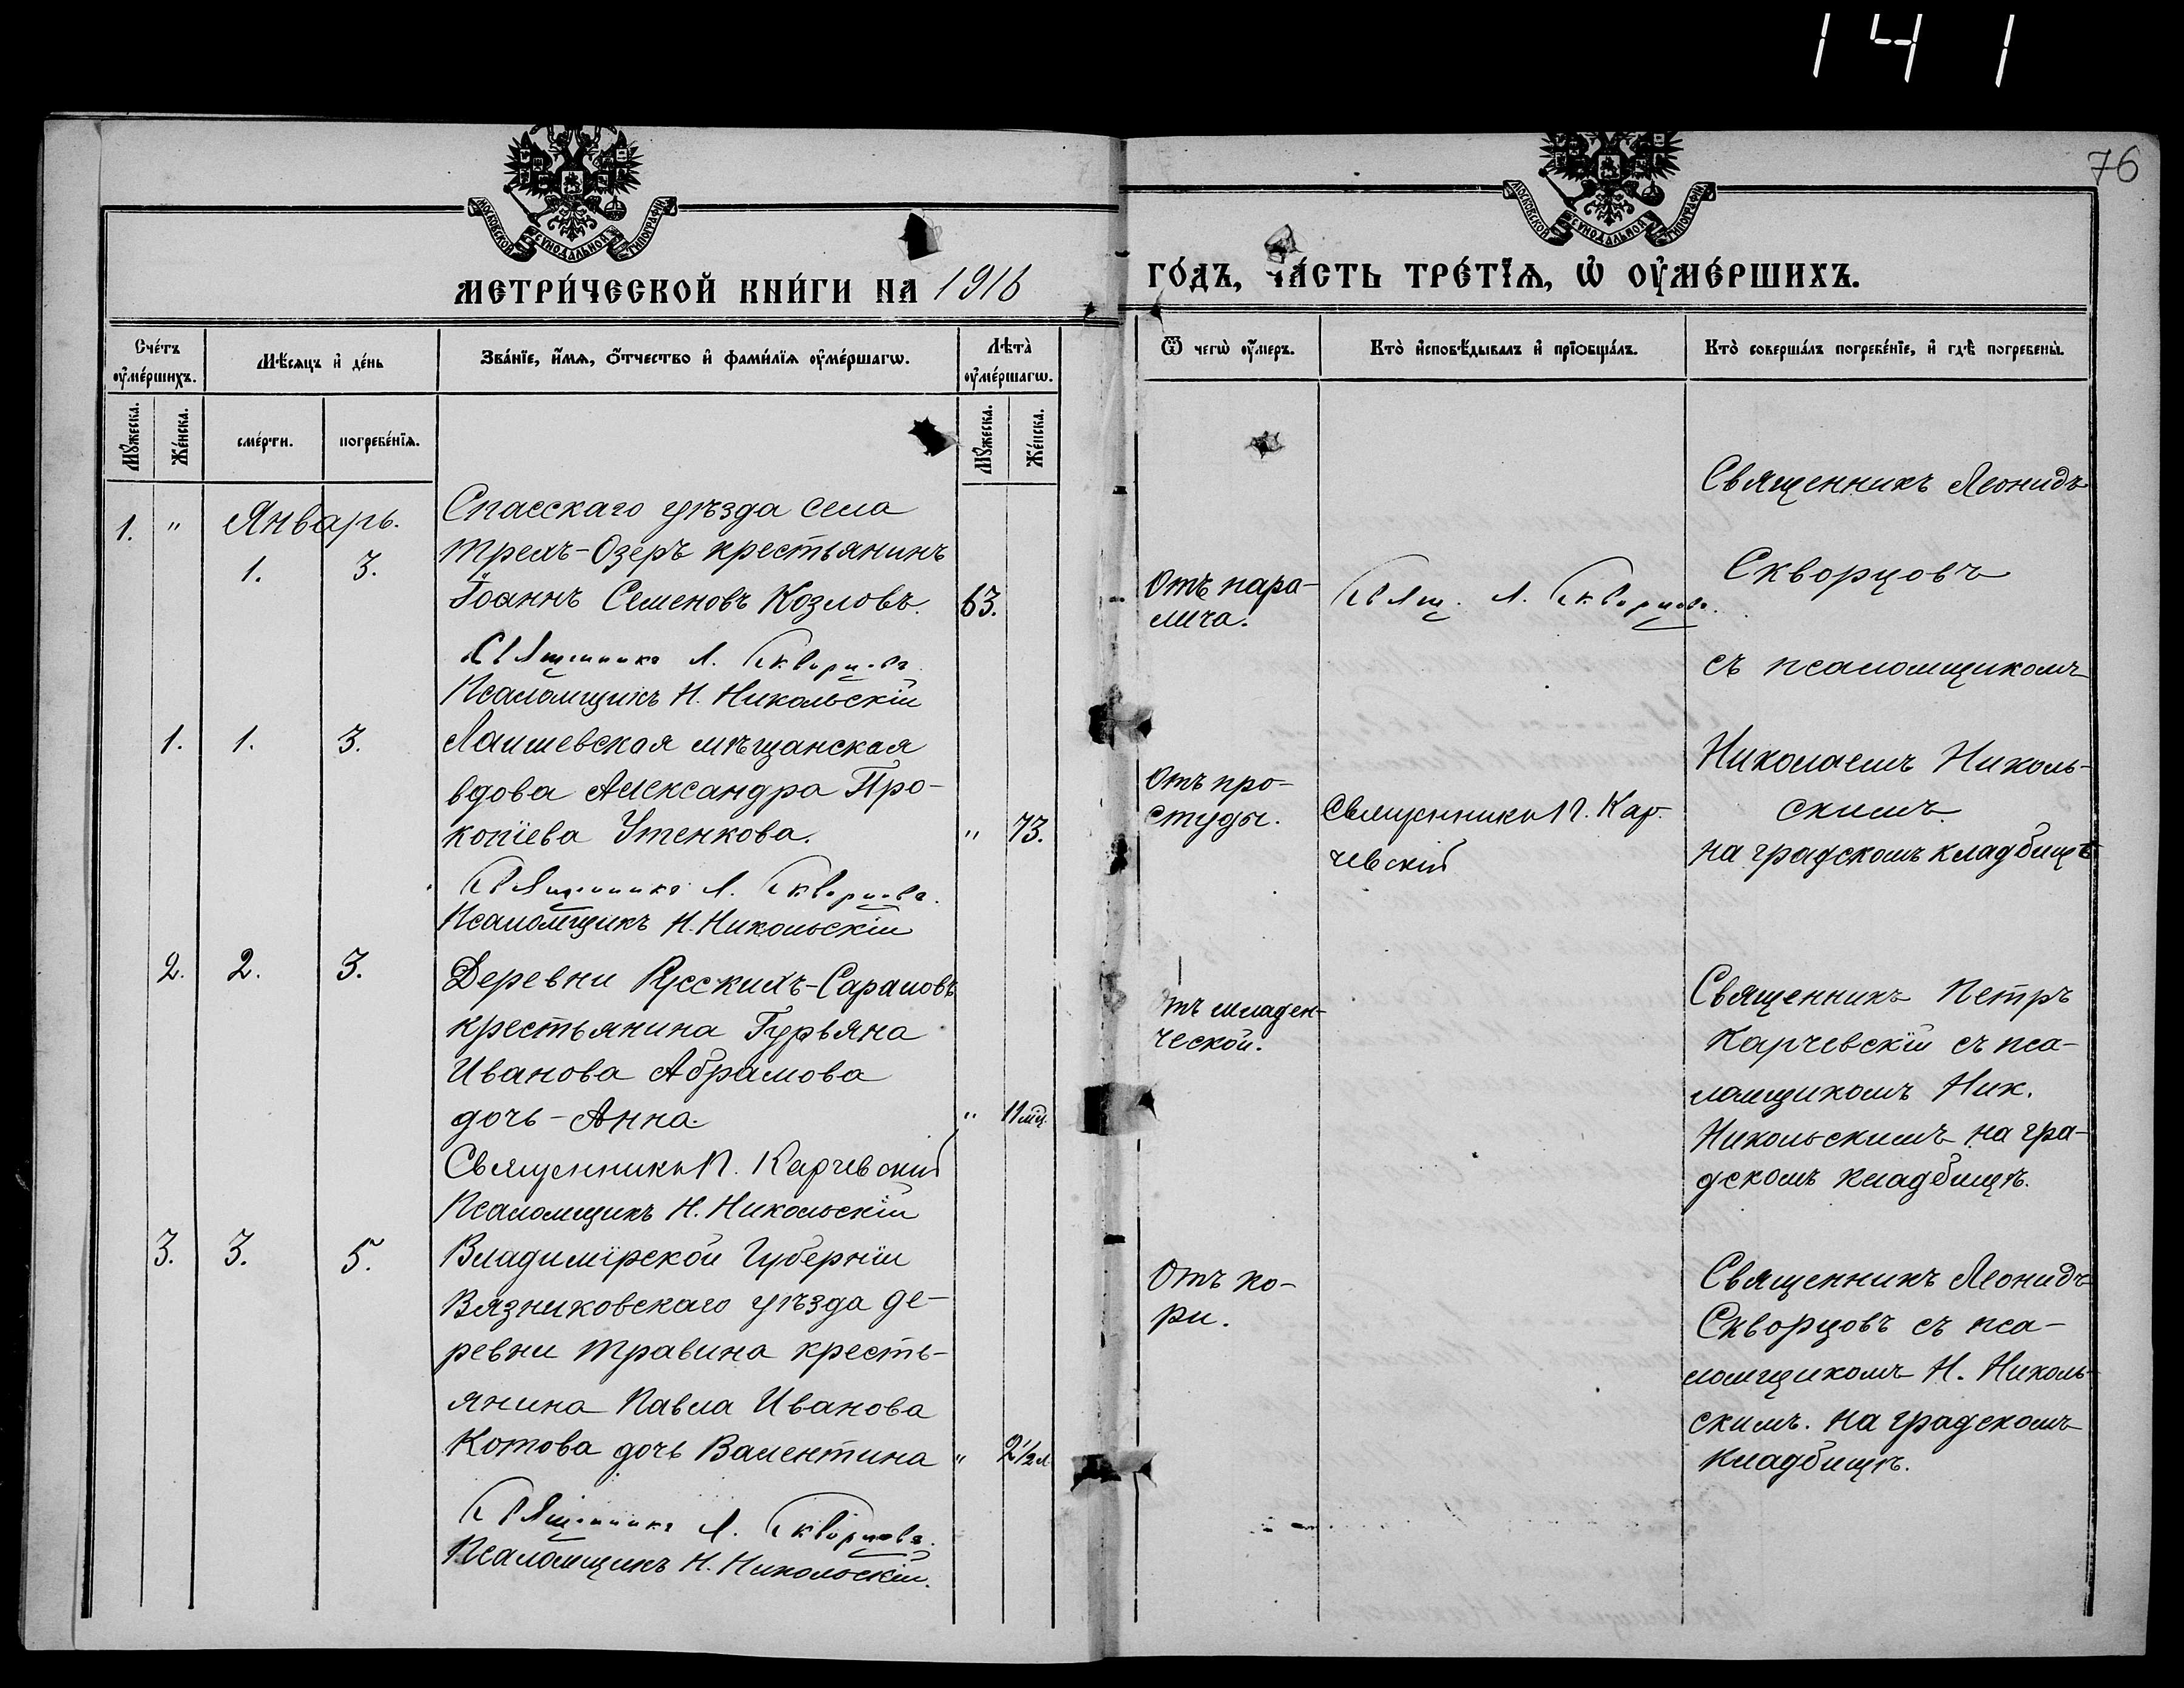 141
76
МОСКОВСКОЙ СѴНОДАЛЬНОЙ ТИПОГРАФІИ
МОСКОВСКОЙ СѴНОДАЛЬНОЙ ТИПОГРАФІИ
МЕТРИ́ЧЕСКОЙ КНИ́ГИ НА 1916 ГО́ДЪ, ЧА́СТЬ ТРЕ́ТЇѦ, Ѡ҆ ОУ҆МЕ́РШИХЪ.
Сче́тъ оу҆ме́ршихъ.
Мѣ́сѧцъ и҆ де́нь
Зва́нїе, и҆́мѧ, ѻ҆́тчество и҆ фами́лїѧ оу҆ме́ршагѡ.
Лѣта̀ оу҆ме́ршагѡ.
Ѿ чегѡ̀ оу҆́меръ.
Кто̀ и҆сповѣ́дывалъ и҆ прїѻбща́лъ.
Кто̀ соверша́лъ погребе́нїе, и҆ гдѣ̀ погребены̀.
Мꙋ́жеска.
Же́нска.
сме́рти.
погребе́нїѧ.
Мꙋ́жеска.
Же́нска.
1. " Январь.
1. 3.
Спасскаго уѣзда села
Трехъ-Озеръ крестьянинъ
Іоаннъ Семеновъ Козловъ. 63.
Священникъ Л. Скворцовъ.
Псаломщикъ Н. Никольскій
Отъ пара-
лича.
Свящ. Л. Скворцовъ.
Священникъ Леонидъ
Скворцовъ
съ псаломщикомъ
Николаемъ Николь-
скимъ
на градскомъ кладбищѣ
1. 1. 3.
Лаишевская мѣщанская
вдова Александра Про-
копіева Утенкова. " 73.
Священникъ Л. Скворцовъ.
Псаломщикъ Н. Никольскій
Отъ про-
студы.
Священникъ П. Кар-
чевскій
2. 2. 3.
Деревни Русскихъ-Сараловъ
крестьянина Гурьяна
Иванова Абрамова
дочь-Анна. " 11 мц.
Священникъ П. Карчевскій
Псаломщикъ Н. Никольскій
тъ младен-
ческой.
Священникъ Петръ
Карчевскій съ пса-
ломщикомъ Ник.
Никольскимъ на гра-
дскомъ кладбищѣ.
3. 3. 5.
Владимірской Губерніи
Вязниковскаго уѣзда де-
ревни Травина кресть-
янина Павла Иванова
Котова дочь Валентина " 2½ л
Священникъ Л. Скворцовъ.
Псаломщикъ Н. Никольскій.
Отъ ко-
ри.
Священникъ Леонидъ
Скворцовъ съ пса-
ломщикомъ Н. Николь-
скимъ. на градскомъ
кладбищѣ.